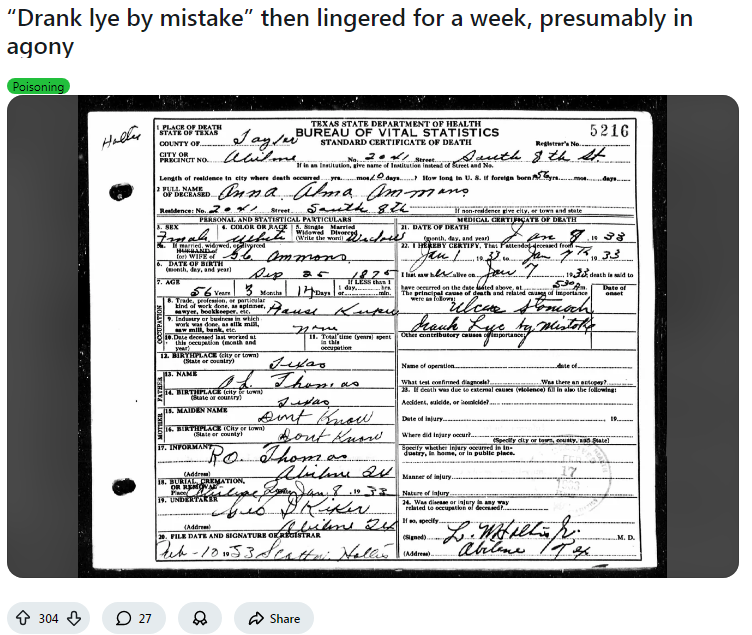 “Drank lye by mistake” then lingered for a week, presumably in
agony
Poisoning
Hollis
TEXAS STATE DEPARTMENT OF HEALTH
BUREAU OF VITAL STATISTICS
STANDARD CERTIFICATE OF DEATH
5216
1 PLACE OF DEATH
STATE OF TEXAS
COUNTY OF Taylor
Registrar's No.
CITY OR
PRECINCT NO. Abilene No. 2041 Street South 8th St.
If in an Institution, give name of Institution instead of Street and No.
Length of residence in city where death occurred yrs. mos. 10 days. ? How long in U. S. if foreign born? 56 yrs. mos. days.
2 FULL NAME
OF DECEASED Anna Alma Ammons
Residence: No. 2041 Street South 8th If non-residence give city, or town and state
PERSONAL AND STATISTICAL PARTICULARS
3. SEX
Female
4. COLOR OR RACE
White
5. Single Married
Widowed Divorced
(Write the word) Widowed
5a. If married, widowed, or divorced
HUSBAND of
(or) WIFE of Ammons
6. DATE OF BIRTH
(month, day, and year) Sep 25 1875
7. AGE
56 Years 3 Months 14 Days
If LESS than 1
day, hrs.
or min.
OCCUPATION
8. Trade, profession, or particular
kind of work done, as spinner,
sawyer, bookkeeper, etc. House Keeper
9. Industry or business in which
work was done, as silk mill,
saw mill, bank, etc. none
10. Date deceased last worked at
this occupation (month and
year)
11. Total time (years) spent
in this
occupation
12. BIRTHPLACE (city or town)
(State or country) Texas
FATHER
13. NAME Thomas
14. BIRTHPLACE (city or town)
(State or country) Texas
MOTHER
15. MAIDEN NAME Dont Know
16. BIRTHPLACE (City or town)
(State or country) Dont Know
17. INFORMANT R.O. Thomas
(Address) Abilene Tex
18. BURIAL, CREMATION,
OR REMOVAL
Place Abilene, Jan 9, 1933
19. UNDERTAKER Kiker
(Address) Abilene Tex
20. FILE DATE AND SIGNATURE OF REGISTRAR
Feb - 10 1933 Scotta Hollis
MEDICAL CERTIFICATE OF DEATH
21. DATE OF DEATH
(month, day, and year) Jan 8, 1933
22. I HEREBY CERTIFY, That I attended deceased from
Jan 1 1933 to Jan 7th, 1933
I last saw her alive on Jan 7 1933 death is said to
have occurred on the date stated above, at 530 A m.
The principal cause of death and related causes of importance
were as follows:
Date of
onset
Ulcer Stomach
Drank Lye by mistake
Other contributory causes of importance:
Name of operation date of
What test confirmed diagnosis? Was there an autopsy?
23. If death was due to external causes (violence) fill in also the following:
Accident, suicide, or homicide?
Date of injury 19
Where did injury occur?
(Specify city or town, county, and State)
Specify whether injury occurred in in-
dustry, in home, or in public place.
17
Manner of injury
Nature of injury
24. Was disease or injury in any way
related to occupation of deceased?
If so, specify
(Signed) L. W. Hollis Jr. M. D.
(Address) Abilene Tex
304
27
Share